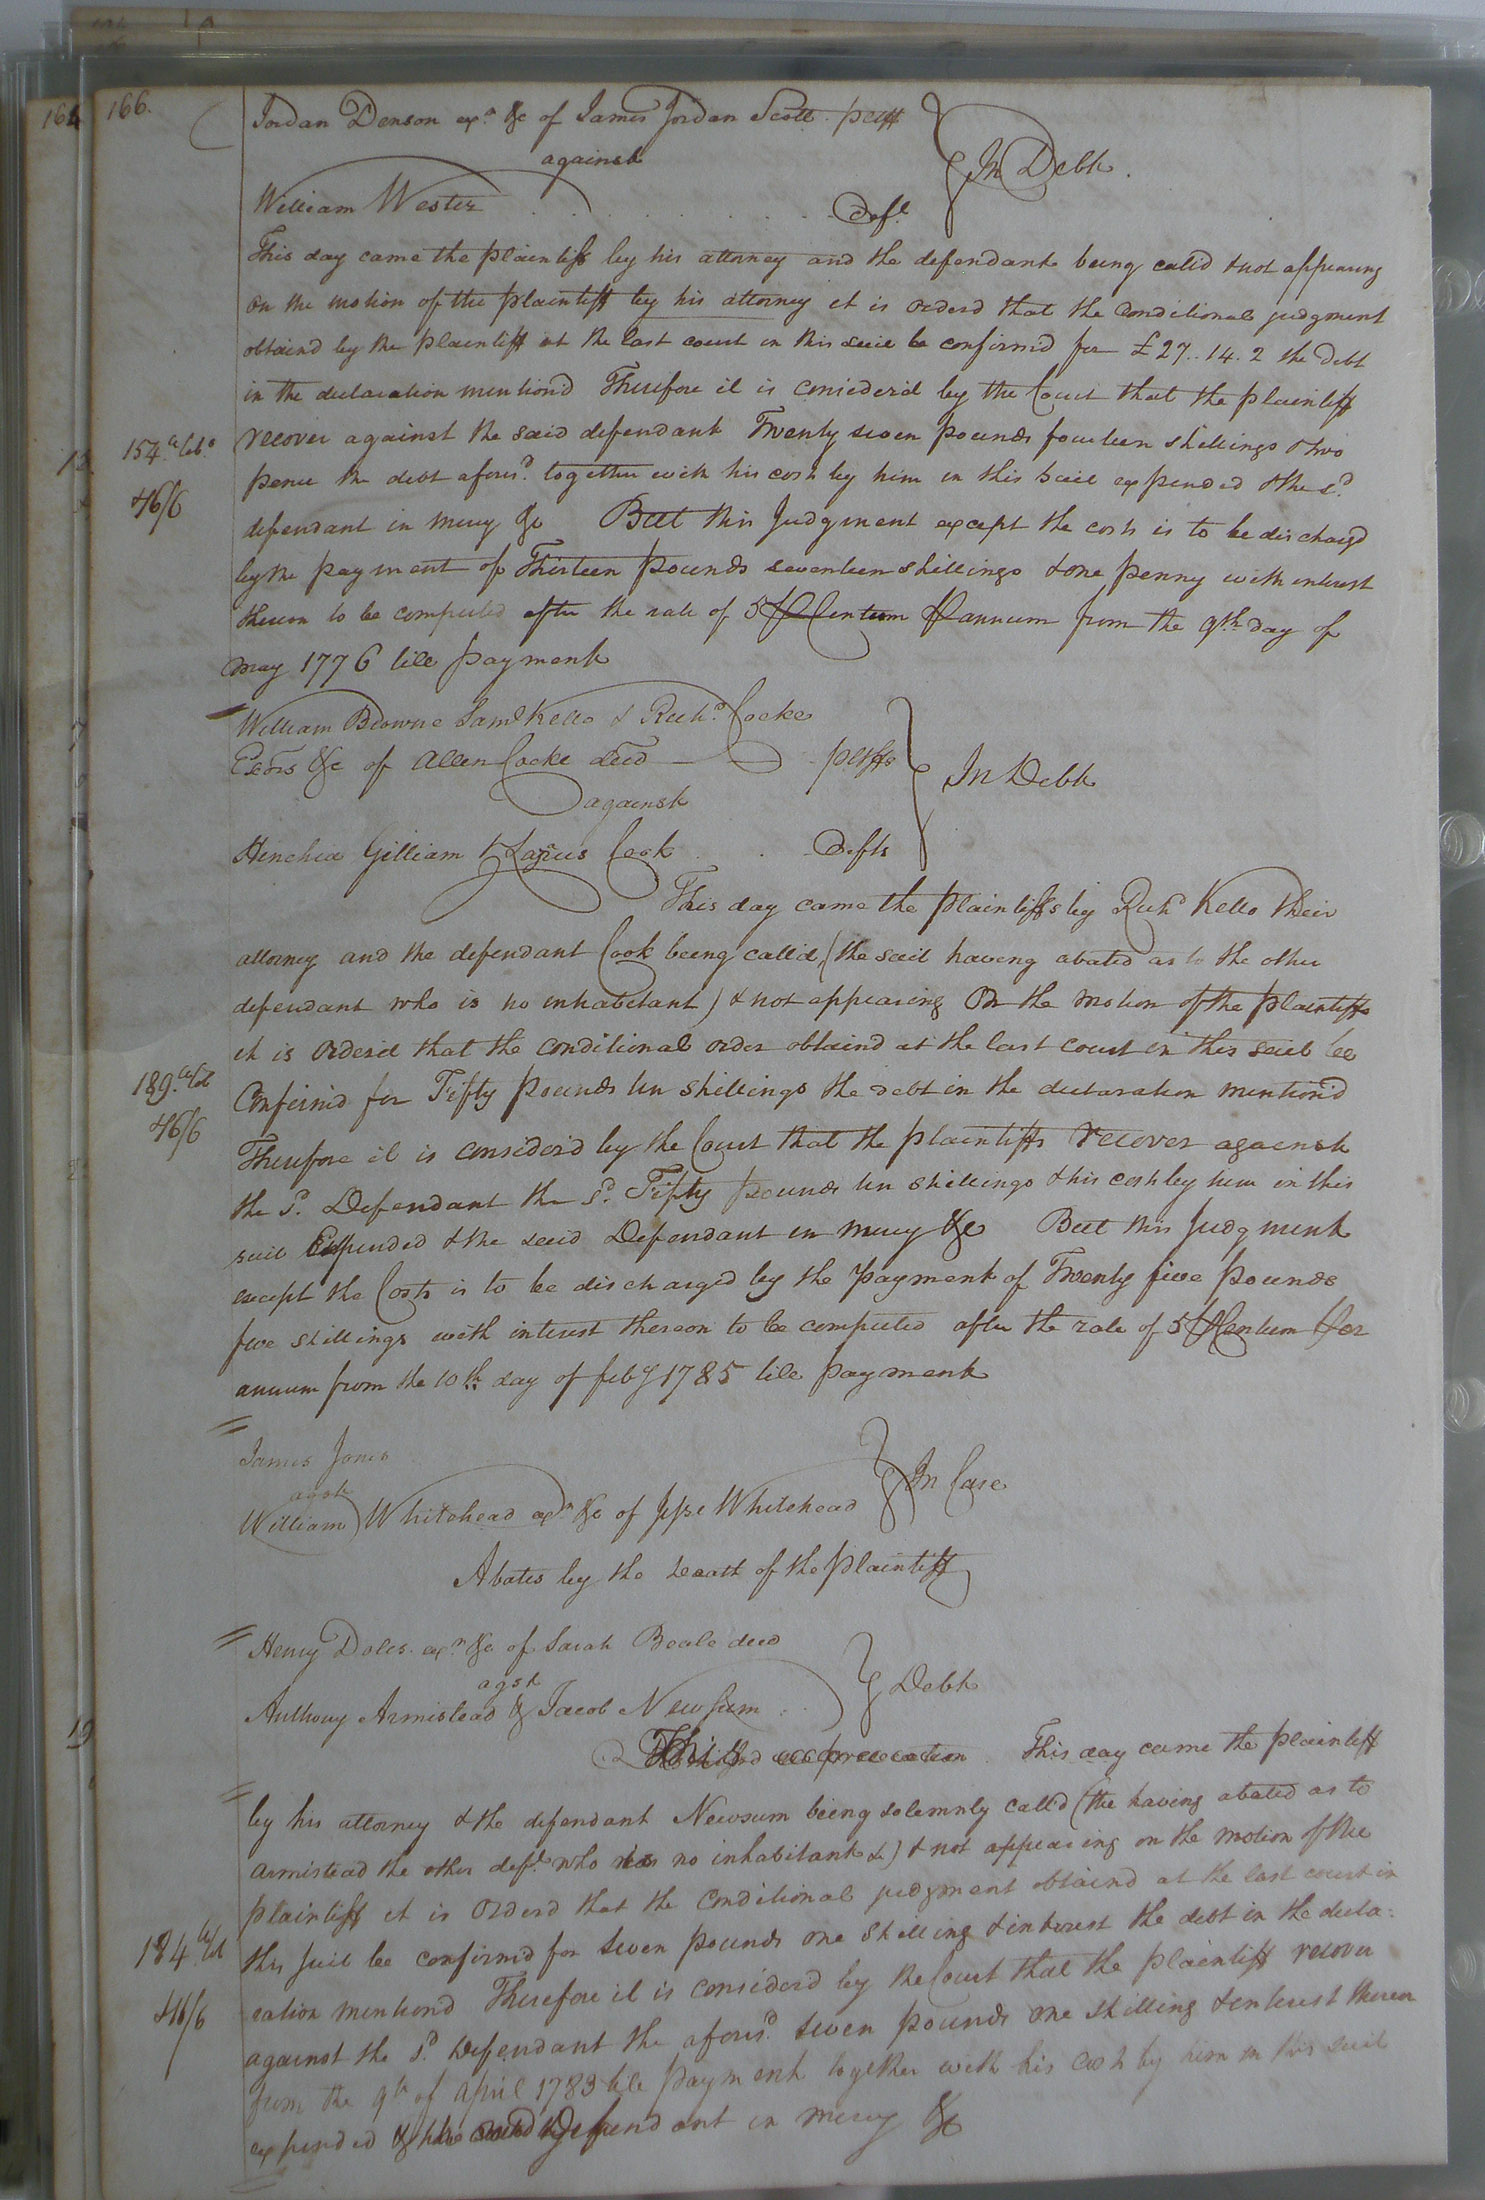 166.
Jordan Denson exr. &c of James Jordan Scott pltff
against
In Debt.
William Wester . . . . . . . . Deft.
This day came the plaintiff by his attorney and the defendant being calld & not appearing
On the motion of the plaintiff by his attorney it is orderd that the conditional judgment
obtaind by the plaintiff at the last court in this suit be confirmd for £27..14.2 the debt
in the declaration mentiond Therefore it is considerd by the Court that the plaintiff
recover against the said defendant Twenty seven pounds fourteen shillings & two
pence the debt aforesd. together with his cost by him in this suit expended & the sd.
defendant in mercy &c But this Judgment except the costs is to be dischargd
by the payment of Thirteen pounds seventeen shillings & one penny with interest
thereon to be computed after the rate of 5 P Centum P annum from the 9th day of
may 1776 till payment
154
46/6
William Browne Saml Kello & Richd. Cocke
Exors &c of Allen Cocke decd — pltffs
In Debt
against
Hinchia Gilliam & Lazrus Cook . . Defts
This day came the plaintiffs by Richd Kello their
attorney and the defendant Cook being calld, (the suit having abated as to the other
defendant who is no inhabitant) & not appearing On the motion of the plaintiffs
it is Orderd that the conditional order obtaind at the last court in this suit be
Confirmd for Fifty pounds ten shillings the debt in the declaration mentiond
Therefore it is considerd by the Court that the plaintiffs recover against
the sd. Defendant the sd. Fifty pounds ten shillings & his cost by him in this
suit Expended & the said Defendant in mercy &c But this Judgment
except the Costs is to be discharged by the payment of Twenty five pounds
five shillings with interest thereon to be computed after the rate of 5 P Centum Per
annum from the 10th day of feby 1785 till payment
189
46/6
James Jones
agst
In Case
William Whitehead exr &c of Jesse Whitehead
Abates by the Death of the plaintiff
Henry Doles exr &c of Sarah Beale decd
agst
Debt
Anthony Armistead & Jacob Newsum . .
This day came the plaintiff
by his attorney & the defendant Newsum being solemnly calld (the having abated as to
Armistead the other deft. who is no inhabitant &) & not appearing on the motion of the
plaintiff it is Orderd that the conditional judgment obtaind at the last court in
this suit be confirmd for seven pounds one shilling & interest the debt in the decla-
ration mentiond Therefore it is considerd by the Court that the plaintiff recover
against the sd. Defendant the aforesd. seven pounds one shilling & interest thereon
from the 9th of April 1783 till payment together with his cost by him in this suit
expended & the said Defendant in mercy &c
184
46/6